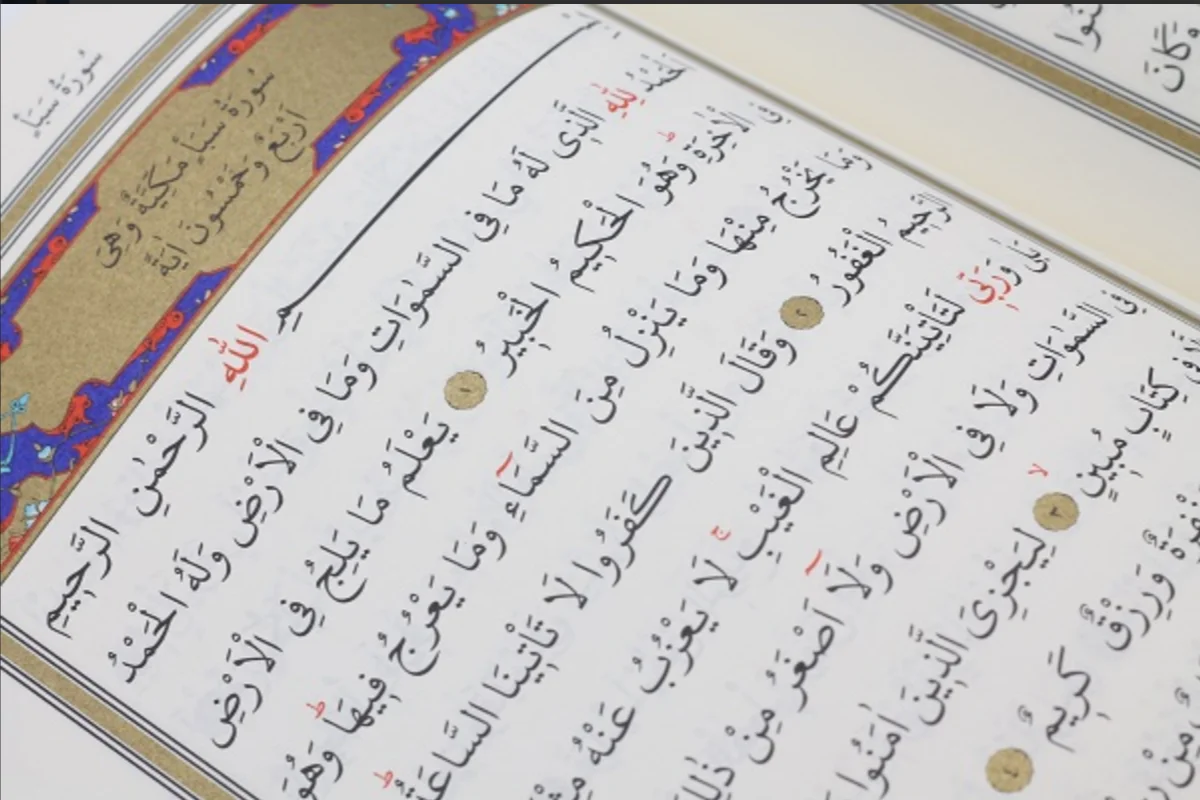 سُورَةُ سَبَأٍ
سُورَةُ سَبَأٍ مَكِّيَّةٌ وَهِىَ
اَرْبَعٌ وَخَمْسُونَ اٰيَةً
بِسْمِ اللّٰهِ الرَّحْمٰنِ الرَّحِيمِ
اَلْحَمْدُ لِلّٰهِ الَّذِى لَهُ مَا فِى السَّمٰوَاتِ وَمَا فِى الْاَرْضِ وَلَهُ الْحَمْدُ
فِى الْاٰخِرَةِ ط وَهُوَ الْحَكِيمُ الْخَبِيرُ ١ يَعْلَمُ مَا يَلِجُ فِى الْاَرْضِ
وَمَا يَخْرُجُ مِنْهَا وَمَا يَنْزِلُ مِنَ السَّمَٓاءِ وَمَا يَعْرُجُ فِيهَا ط وَهُوَ
الرَّحِيمُ الْغَفُورُ ٢ وَقَالَ الَّذِينَ كَفَرُوا لَا تَاْتِينَا السَّاعَةُ ط
بَلٰى وَرَبِّى لَتَاْتِيَنَّكُمْ عَالِمِ الْغَيْبِ ج لَا يَعْزُبُ عَنْهُ
فِى السَّمٰوَاتِ وَلَا فِى الْاَرْضِ وَلَٓا اَصْغَرُ مِنْ ذٰلِكَ
فِى كِتَابٍ مُبِينٍ لا ٣ لِيَجْزِىَ الَّذِينَ اٰمَنُوا
وَرِزْقٌ كَرِيمٌ ٤
مِنْ
وَكَانَ